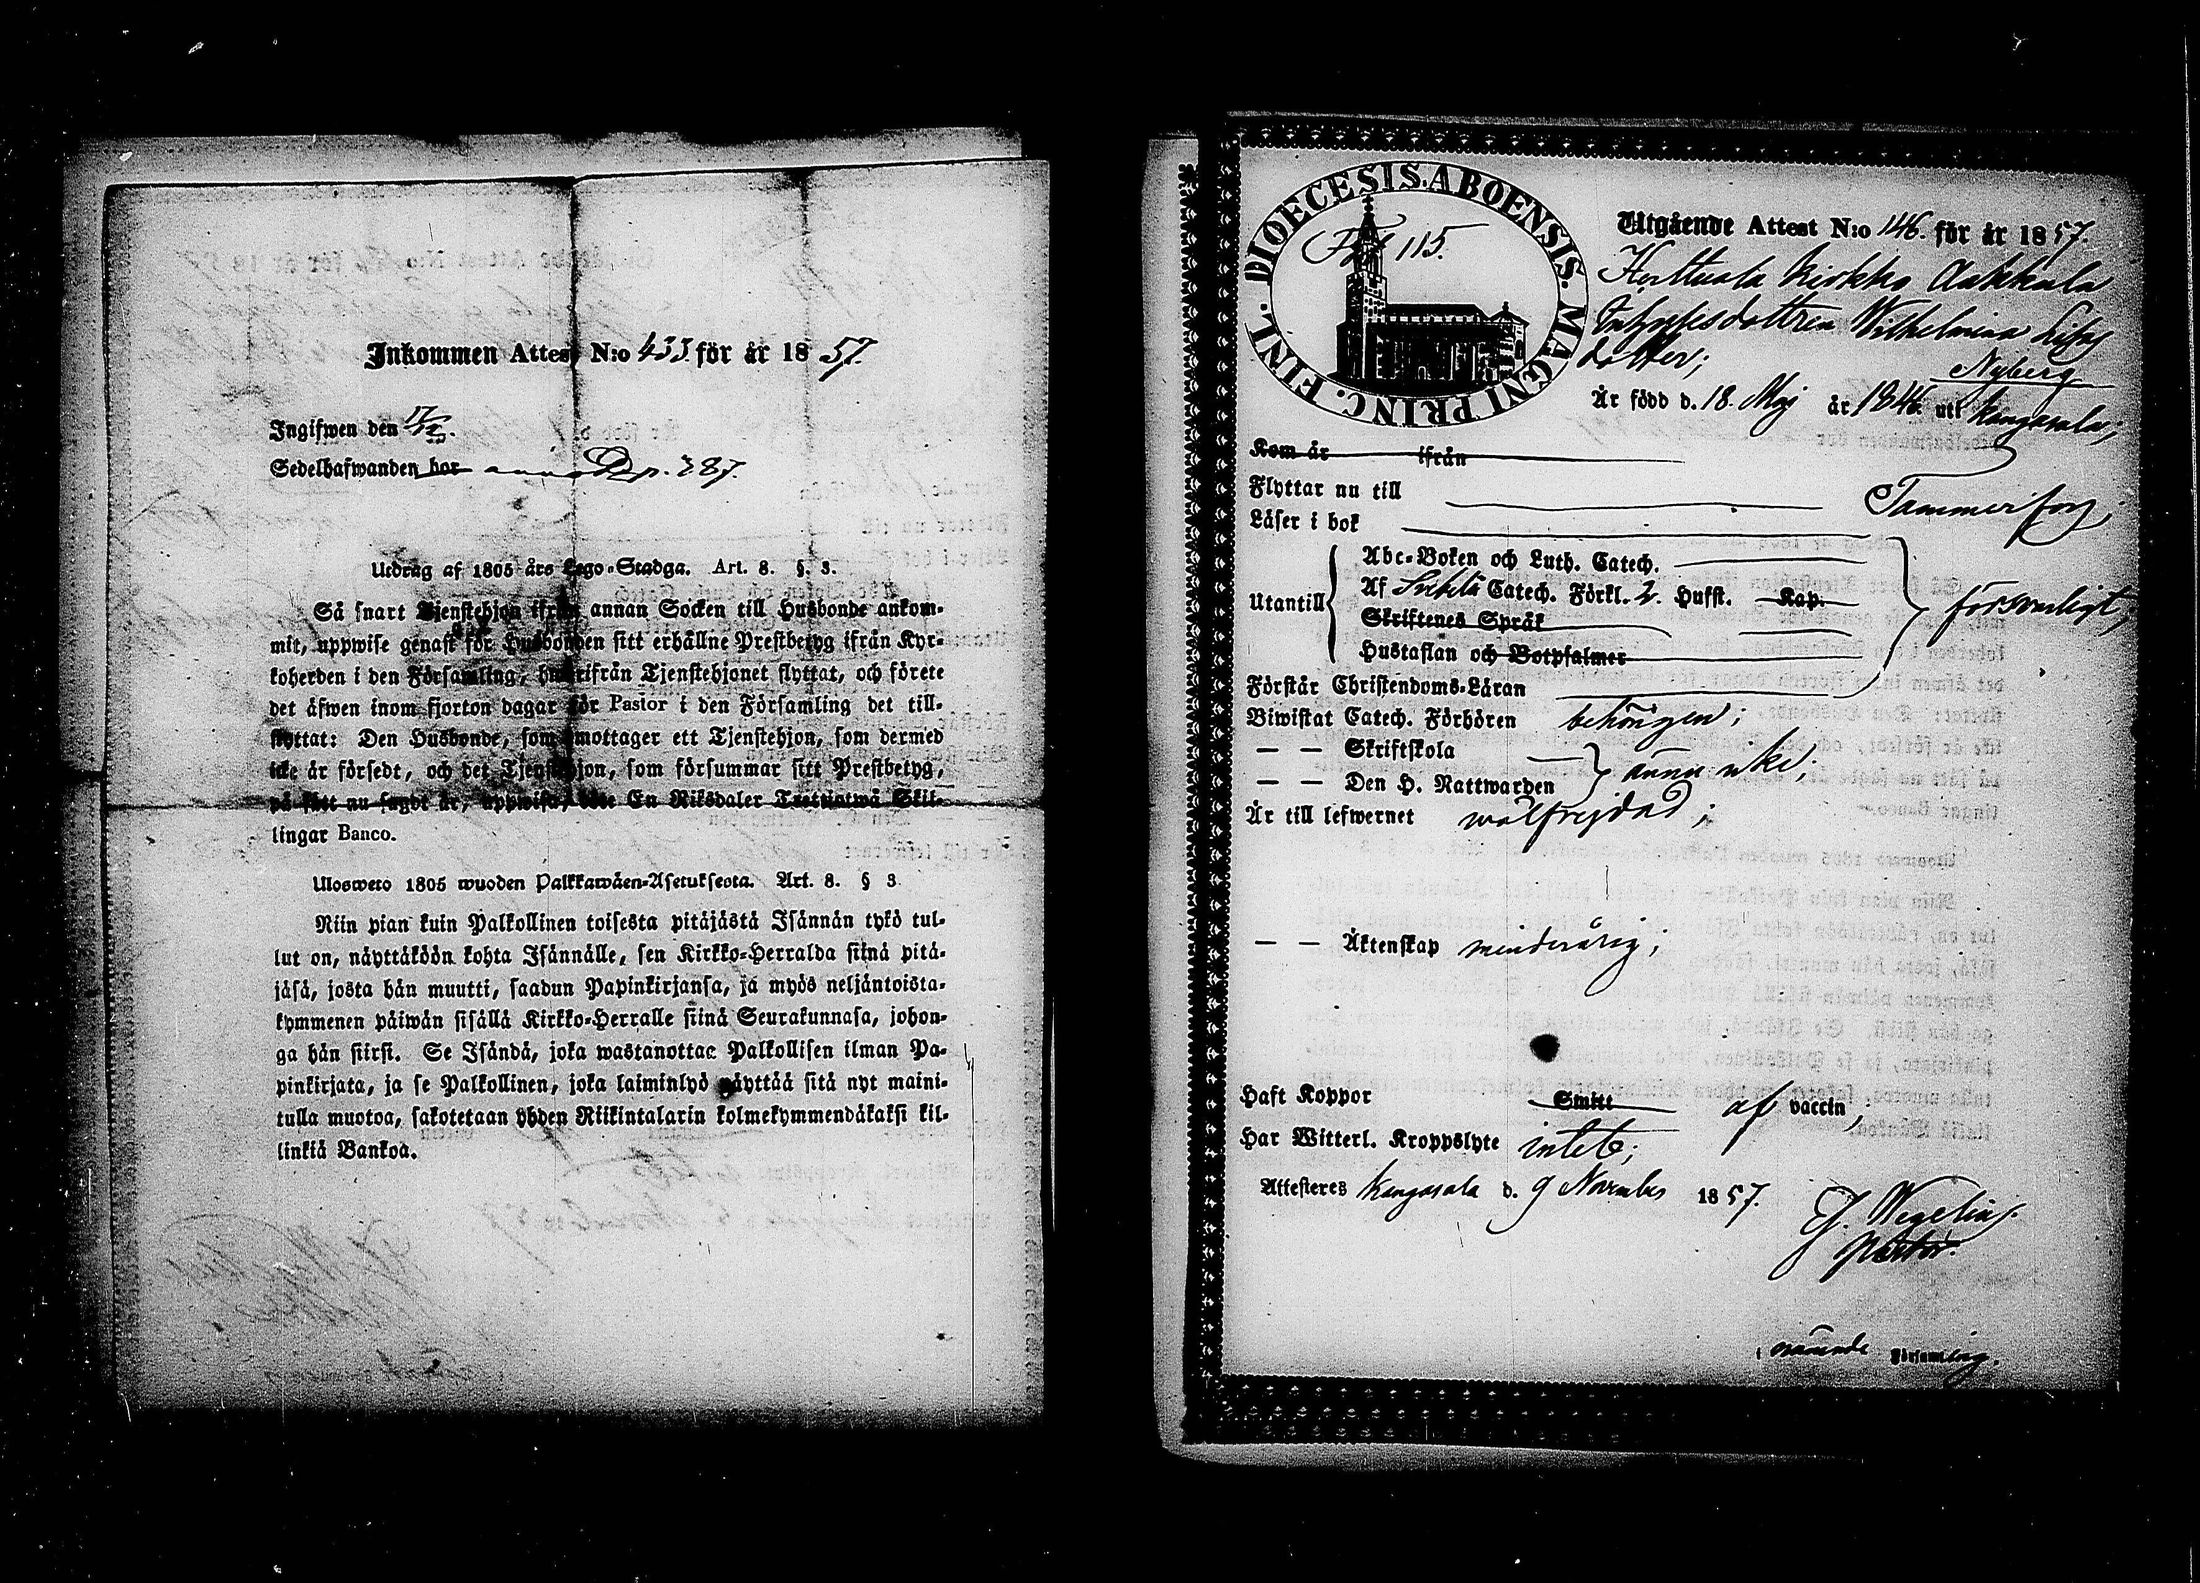 Inkommen Attest N:o 433 för år 1857.
Ingifwen den 17/12.
Sedelhafwanden bor p. 387.
Utdrag af 1805 års Lego-Stadga. Art. 8. §. 3.
Så snart Tjenstehjon ifrån annan Socken till Husbonde ankom-
mit, uppwise genast för Husbonden sitt erhållne Prestbetyg ifrån Kyr-
koherden i den Församling, hwarifrån Tjenstehjonet flyttat, och förete
det äfwen inom fjorton dagar för Pastor i den Församling det till-
flyttat: Den Husbonde, som emottager ett Tjenstehjon, som dermed
icke är försedt, och det Tjenstehjon, som försummar sitt Prestbetyg,
på sätt nu sagdt är, uppwisa, böte En Riksdaler Trettiotwå Skil-
lingar Banco.
Ulosweto 1805 wuoden Palkkawäen-Asetuksesta. Art. 8. § 3
Niin pian kuin Palkollinen toisesta pitäjästä Isännän tykö tul-
lut on, näyttäköön kohta Isännälle, sen Kirkko-Herralda siinä pitä-
jäsä, josta hän muutti, saadun Papinkirjansa, ja myös neljäntoista-
kymmenen päiwän sisällä Kirkko-Herralle siinä Seurakunnasa, johon-
ga hän siirsi. Se Isändä, joka wastanottaa Palkollisen ilman Pa-
pinkirjata, ja se Palkollinen, joka laiminlyö näyttää sitä nyt maini-
tulla muotoa, sakotetaan yhden Riikintalarin kolmekymmendäkaksi kil-
linkiä Bankoa.
DIOECESIS. ABOENSIS. MAGNI PRINC. FINL.
115.
Utgående Attest N:o 146. för år 1857.
Kerttuala Kirkko Aakkula
Inhysesdottren Wilhelmina
dotter; Nyberg
Är född d. 18. Maj år 1846. uti Kangasala;
Kom år ifrån
Flyttar nu till Tammerfors;
Läser i bok
Utantill
Abc-Boken och Luth. Catech.
Af Catech. Förkl. 2. Hufst. Kap.
Skriftenes Språk
försvarligt;
Hustaflan och Botpsalmer
Förstår Christendoms-Läran
Biwistat Catech. Förhören behörigen;
— — Skriftskola
— — Den H. Nattwarden ännu icke;
Är till lefwernet wälfrejdad;
— — Äktenskap minderårig;
Haft Koppor Smitt af vaccin;
Har Witterl. Kroppslyte intet;
Attesteres Kangasala d. 9 November 1857.
J. Wegelius.
Pastor.
Församling.